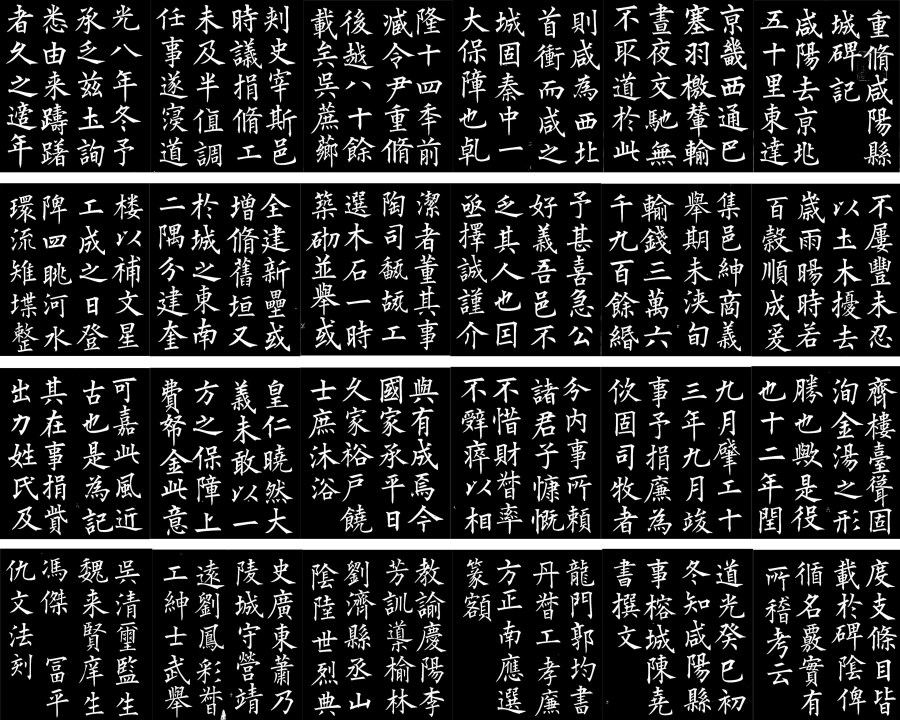 重脩咸陽縣
城碑記
咸陽去京兆
五十里東達
京畿西通巴
塞羽檄輦輸
晝夜交馳無
不取道於此
則咸為西北
首衝而咸之
城固秦中一
大保障也乹
隆十四季前
臧令尹重脩
後越八十餘
載矣吳蔗薌
刺史宰斯邑
時議捐脩工
未及半值調
任事遂寖道
光八年冬予
承乏茲土詢
悉由来躊躇
者久之適年
不屢豐未忍
以土木擾去
歲雨暘時若
百穀順成爰
集邑紳商義
舉期未浹旬
輸錢三萬六
千九百餘緡
予甚喜急公
好義吾邑不
乏其人也因
亟擇誠謹介
潔者董其事
陶司甎瓴工
選木石一時
築砌並舉或
全建新壘或
增脩舊垣又
於城之東南
二隅分建奎
楼以補文星
工成之日登
陴四眺河水
環流雉堞整
齊樓臺聳固
洵金湯之形
勝也歟是役
也十二年閏
九月肇工十
三年九月竣
事予捐廉為
佽固司牧者
分内事所頼
諸君子慷慨
不惜財督率
不辤瘁以相
與有成焉今
國家承平日
久家裕戶饒
士庶沐浴
皇仁曉然大
義未敢以一
方之保障上
費帑金此意
可嘉此風近
古也是為記
其在事捐貲
出力姓氏及
度支條目皆
載於碑陰俾
循名覈實有
所稽考云
道光癸巳初
冬知咸陽縣
事榕城陳堯
書撰文
龍門郭均書
丹督工孝廉
方正南應選
篆額
教諭慶陽李
芳訓道榆林
劉濟縣丞山
陰陸世烈典
史廣東蕭乃
陵城守營靖
遠劉鳳彩督
工紳士武舉
吳清璽監生
魏来賢庠生
馮傑 冨平
仇文法刻